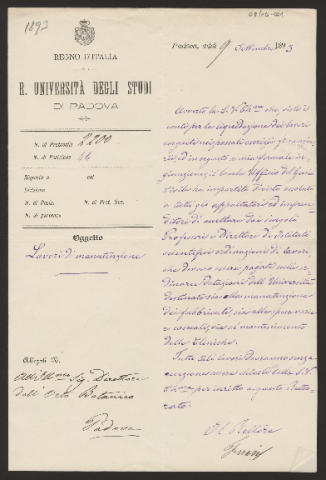 1893
REGNO D'ITALIA
R. UNIVERSITÀ DEGLI STUDI
DI PADOVA
N. di Protocollo 2200
N. di Posizione 26
Risposta a del
Divisione
N. di Posiz. N. di Prot. Sez.
N. di partenza
Oggetto
Lavori di manutenzione
Allegati N.
All'Ill.mo Sig. Direttore
dell'Orto Botanico
Padova
Padova, addì 9 Settembre 1893
Avverto la S. V. Ill.ma che, visti i
conti per la liquidazione dei lavori
eseguiti nei passati esercizi finanzia-
ri, ed in seguito a mia formale in-
giunzione, il locale Ufficio del Genio
Civile ha impartito divieto assoluto
a tutti gli appaltatori ed impren-
ditori di accettare dai singoli
Professori e Direttori di Istituti
scientifici ordinazioni di lavori,
che devono essere pagati sulle or-
dinarie dotazioni dell'Università
destinate sia alla manutenzione
dei fabbricati, sia alle spese varie
e casuali, sia al mantenimento
delle Cliniche.
Tutti tali lavori dovranno senza
eccezione essere chiesti dalla S. V.
Ill.ma per iscritto a questo Retto-
rato.
Il Rettore